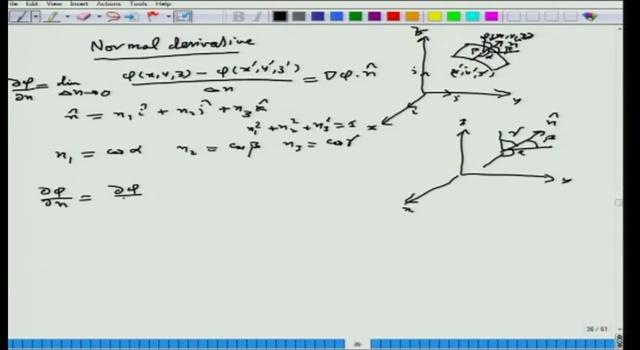 File Edit View Insert Actions Tools Help
Normal derivative
∂φ/∂n = lim Δn→0 (φ(x,y,z) − φ(x',y',z'))/Δn = ∇φ·n̂
n̂ = n₁ î + n₂ ĵ + n₃ k̂
n₁² + n₂² + n₃² = 1
n₁ = cos α n₂ = cos β n₃ = cos γ
∂φ/∂n = ∂φ/
z
φ(x,y,z)
(x',y',z')
j
i
x
y
z
γ
n̂
β
α
x
y
26 / 61
26